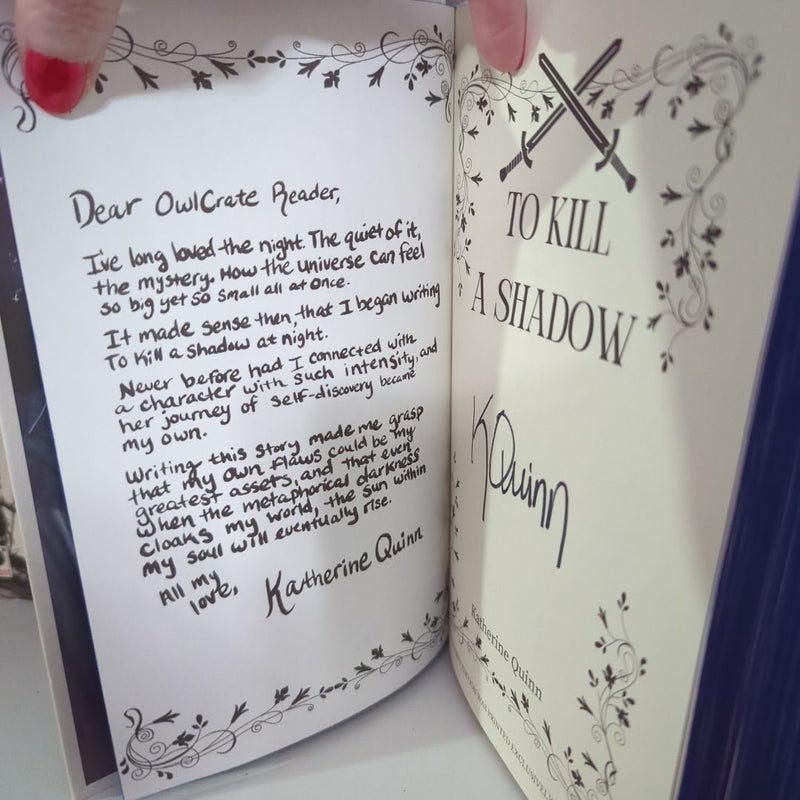 Dear OwlCrate Reader,
I've long loved the night. The quiet of it,
the mystery. How the universe can feel
so big yet so small all at once.
It made sense then, that I began writing
To Kill a Shadow at night.
Never before had I connected with
a character with such intensity, and
her journey of self-discovery became
my own.
Writing this story made me grasp
that my own flaws could be my
greatest assets, and that even
when the metaphorical darkness
cloaks my world, the sun within
my soul will eventually rise.
All my
love,
Katherine Quinn
TO KILL
A SHADOW
KQuinn
Katherine Quinn
WAS PRINTED EXCLUSIVELY